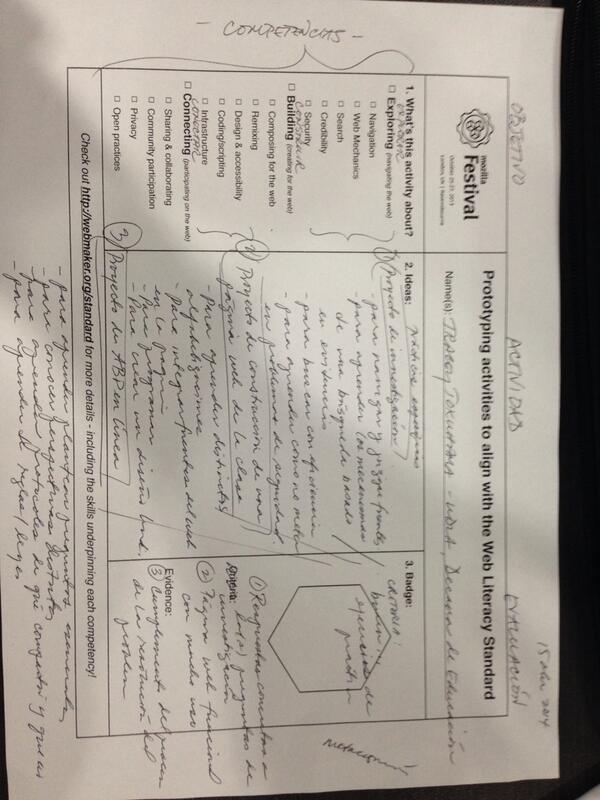 15 abr 2014
OBJETIVO
ACTIVIDAD
EVALUACIÓN
mozilla
Festival
October 25-27, 2013
London, UK | Ravensbourne
Prototyping activities to align with the Web Literacy Standard
Name(s): TRACEY TOKUHAMA - UDLA, Decana de Educación
- COMPETENCIAS -
1. What's this activity about?
EXPLORAR
Exploring (navigating the web)
Navigation
Web Mechanics
Search
Credibility
Security
CONSTRUIR
Building (creating for the web)
Composing for the web
Remixing
Design & accessibility
Coding/scripting
Infrastructure
CONECTAR
Connecting (participating on the web)
Sharing & collaborating
Community participation
Privacy
Open practices
2. Ideas:
1) Proyecto de investigación
- para navegar y juzgar fuentes
- para aprender los mecanismos
de una búsqueda basado
en evidencias
- para buscar con eficiencia
- para aprender como no meter
en problemas de seguridad
2) Proyecto de construcción de una
página web de la clase
- Para aprender distintos
- para integrar fuentes del web
en la página
- Para programar
- Para crear un diseño
3) Proyecto de ABP en línea
- para aprender plantear preguntas esenciales
- para conocer perspectivas distintas
- para aprender protocolos de qué compartir y qué es
- para aprender de reglas/leyes
3. Badge:
CRITERIA:
Criteria:
1) Respuestas concretas a
la(s) preguntas de
investigación
2) Página web funcional
con mucho uso
Evidence:
3) Cumplimiento del proceso
de la resolución del
problem
Check out http://webmaker.org/standard for more details - including the skills underpinning each competency!